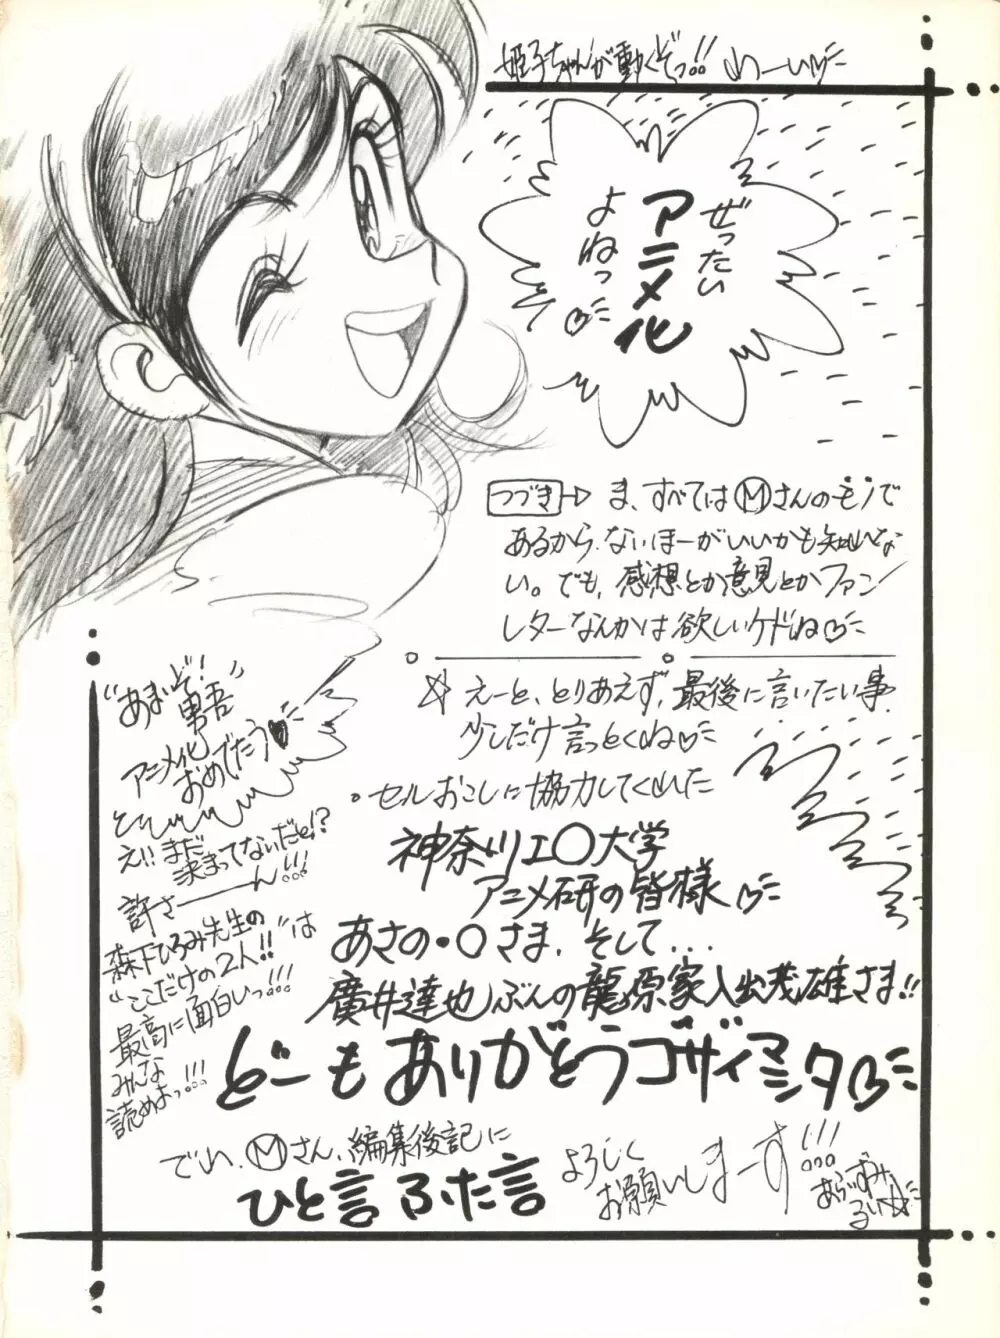 姫子ちゃんが動くぞっ!! わーい
ぜったい
アニメ化
よねっ
つづき ま、すべてはⓂさんのモノで
あるから、ないほーがいいかも知れな
い。でも、感想とか意見とかファン
レターなんかは欲しいケドね
えーと、とりあえず、最後に言いたい事
少しだけ言っとくね
。セルおこしに協力してくれた
神奈川工〇大学
アニメ研の皆様
あさの・〇さま、そして...
廣井達也ぶんの龍原家入出茂雄さま!!
どーもありがとうゴザイマシタ
でわ、Ⓜさん、編集後記に
ひと言ふた言
よろしく
お願いしまーす!!!
あらいずみ
るい
"あまいぞ!
男吾"
アニメ化
おめでたう
え!! まだ
決まってないだと!?
許さーーん!!!
森下ひろみ先生の
"ここだけの2人!!"は
最高に面白いっ!!!
みんな
読めよっ!!!